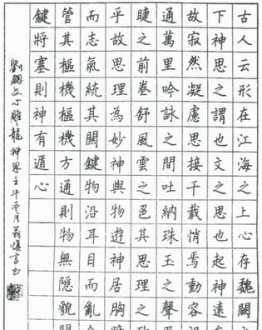 古人云形在江海之上心存魏闕
下神思之謂也文之思也其神遠
故寂然凝慮思接千載悄焉動容
通萬里吟詠之間吐納珠玉之聲
睫之前卷舒風雲之色其思理之
乎故思理為妙神與物遊神居胸
而志氣統其關鍵物沿耳目而
管其樞機方通則物無隱貌
鍵將塞則神有遁心
劉勰文心雕龍神思